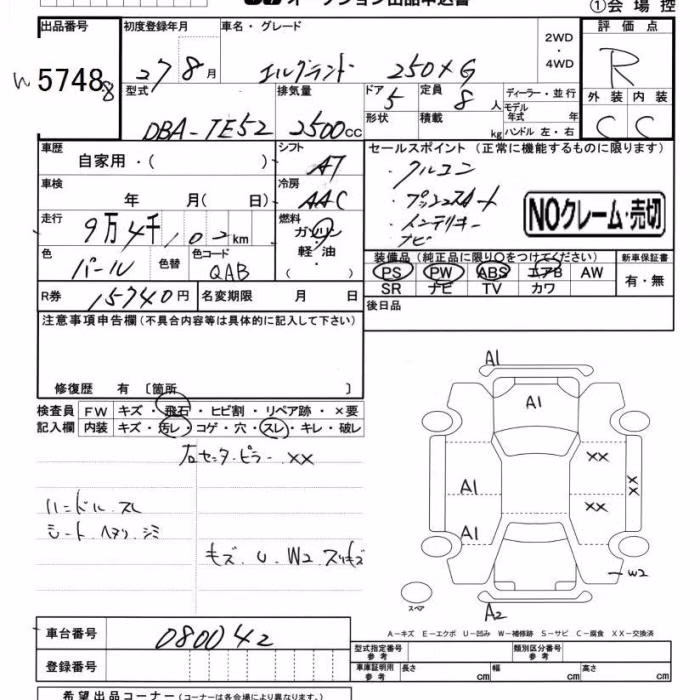 オークション出品申込書
①会場控
出品番号 初度登録年月 車名・グレード 2WD・4WD 評価点
W 57488 27 8月 エルグランド 250XG R
型式 排気量 ドア 定員 ディーラー・並行 外装 内装
DBA-TE52 2500cc 5 8人 モデル年式 年 C C
形状 積載 kg ハンドル 左・右
車歴 自家用・( ) シフト AT セールスポイント (正常に機能するものに限ります)
クルコン
車検 年 月( 日) 冷房 AAC プッシュスタート
インテリキー
ナビ
NOクレーム・売切
走行 9万4千102km 燃料 ガソリン・軽油・( )
装備品(純正品に限り○をつけてください) 新車保証書
色 パール 色替 色コード QAB PS PW ABS エアB AW 有・無
SR ナビ TV カワ
R券 15740円 名変期限 月 日 後日品
注意事項申告欄 (不具合内容等は具体的に記入して下さい)
修復歴 有 〔箇所 〕
検査員 FW キズ・飛石・ヒビ割・リペア跡・×要
記入欄 内装 キズ・汚レ・コゲ・穴・スレ・キレ・破レ
右センターピラー XX
ハンドル スレ
シート ヘタリ シミ
キズ U W2 スリキズ
A1
A1
XX
XX
A1
XX
A1
W2
スペア
A2
A-キズ E-エクボ U-凹み W-補修跡 S-サビ C-腐食 XX-交換済
車台番号 080042
型式指定番号 参考 類別区分番号 参考
登録番号 車庫証明用 参考 長さ cm 幅 cm 高さ cm
希望出品コーナー (コーナーは各会場により異なります。)